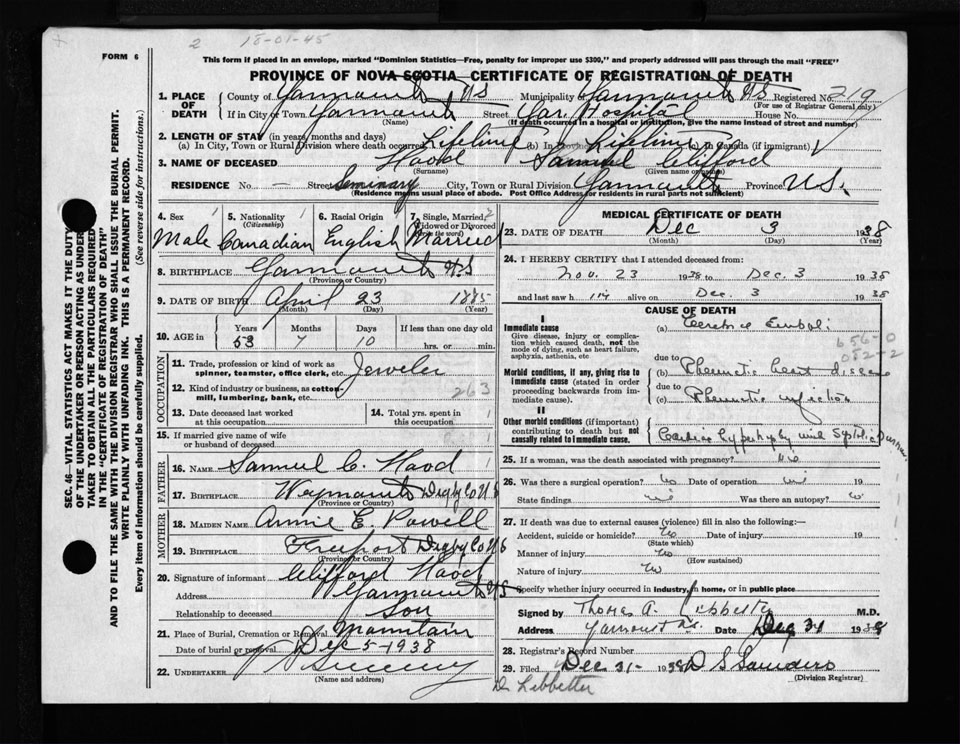 2 18-01-45
FORM 6
This form if placed in an envelope, marked "Dominion Statistics—Free, penalty for improper use $300," and properly addressed will pass through the mail "FREE"
PROVINCE OF NOVA SCOTIA—CERTIFICATE OF REGISTRATION OF DEATH
1. PLACE OF DEATH
County of Yarmouth NS Municipality of Yarmouth NS Registered No. 219
(For use of Registrar General only)
If in City or Town Yarmouth Street Yar. Hospital House No.
(Name) (If death occurred in a hospital or institution, give the name instead of street and number)
2. LENGTH OF STAY (in years, months and days)
(a) In City, Town or Rural Division where death occurred Lifetime (b) In Province Lifetime (c) In Canada (if immigrant)
3. NAME OF DECEASED Hood Samuel Clifford
(Surname) (Given name or names)
RESIDENCE No. — Street Seminary City, Town or Rural Division Yarmouth Province N.S.
(Residence means usual place of abode. Post Office Address for residents in rural parts not sufficient)
4. Sex Male
5. Nationality Canadian
6. Racial Origin English
7. Single, Married, Widowed or Divorced (write the word) Married
8. BIRTHPLACE Yarmouth NS
(Province or Country)
9. DATE OF BIRTH April 23 1885
(Month) (Day) (Year)
10. AGE in Years 53 Months 7 Days 10 If less than one day old hrs. or min.
OCCUPATION
11. Trade, profession or kind of work as spinner, teamster, office clerk, etc. Jeweler
12. Kind of industry or business, as cotton-mill, lumbering, bank, etc. 263
13. Date deceased last worked at this occupation
14. Total yrs. spent in this occupation
15. If married give name of wife or husband of deceased
FATHER
16. NAME Samuel C. Hood
17. BIRTHPLACE Weymouth Digby Co NS
(Province or Country)
MOTHER
18. MAIDEN NAME Annie E. Powell
19. BIRTHPLACE Freeport Digby Co NS
(Province or Country)
20. Signature of informant Clifford Hood
Address Yarmouth NS
Relationship to deceased Son
21. Place of Burial, Cremation or Removal Mountain
Date of burial or removal Dec 5-1938
22. UNDERTAKER
(Name and address)
MEDICAL CERTIFICATE OF DEATH
23. DATE OF DEATH Dec 3 1938
(Month) (Day) (Year)
24. I HEREBY CERTIFY that I attended deceased from:
Nov. 23 1938 to Dec. 3 1938
and last saw him alive on Dec. 3 1938
CAUSE OF DEATH
I
Immediate cause
Give disease, injury or complication which caused death, not the mode of dying, such as heart failure, asphyxia, asthenia, etc
(a) Cerebral Emboli
656-0
052-2
due to
Morbid conditions, if any, giving rise to immediate cause (stated in order proceeding backwards from immediate cause).
(b) Rheumatic heart disease
due to
(c) Rheumatic infection
II
Other morbid conditions (if important) contributing to death but not causally related to immediate cause.
Cardiac hypertrophy with Systolic
25. If a woman, was the death associated with pregnancy? No
26. Was there a surgical operation? No Date of operation 19
State findings Was there an autopsy? No
27. If death was due to external causes (violence) fill in also the following:—
Accident, suicide or homicide? No Date of injury 19
(State which)
Manner of injury No
(How sustained)
Nature of injury No
Specify whether injury occurred in industry, in home, or in public place
Signed by Thomas A. Lebbetter M.D.
Address Yarmouth N.S. Date Dec 31 1938
28. Registrar's Record Number
29. Filed Dec 31- 1938 D S Saunders
(Division Registrar)
Dr Lebbetter
SEC. 46—VITAL STATISTICS ACT MAKES IT THE DUTY
OF THE UNDERTAKER OR PERSON ACTING AS UNDERTAKER TO OBTAIN ALL THE PARTICULARS REQUIRED
IN THE "CERTIFICATE OF REGISTRATION OF DEATH"
AND TO FILE THE SAME WITH THE DIVISION REGISTRAR WHO SHALL ISSUE THE BURIAL PERMIT.
WRITE PLAINLY WITH UNFADING INK. THIS IS A PERMANENT RECORD.
Every item of information should be carefully supplied. (See reverse side for instructions.)